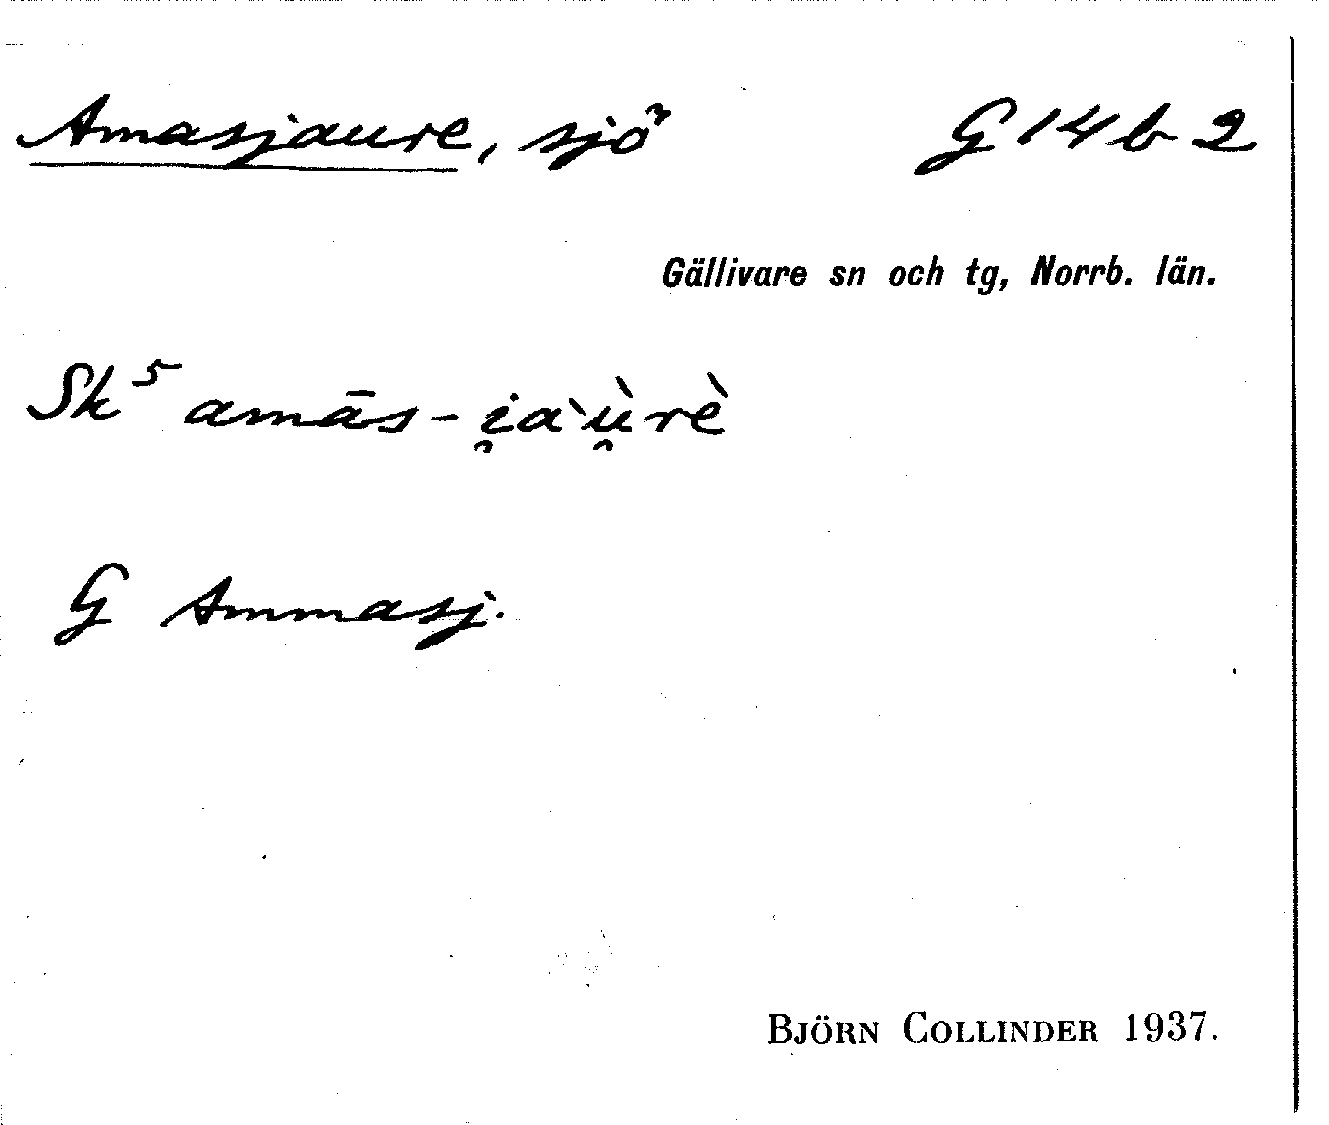 Amasjaure, sjö G 14 b 2
Gällivare sn och tg, Norrb. län.
Sk⁵ amās-i̯aˋù̯rè
G Ammasj.
BJÖRN COLLINDER 1937.